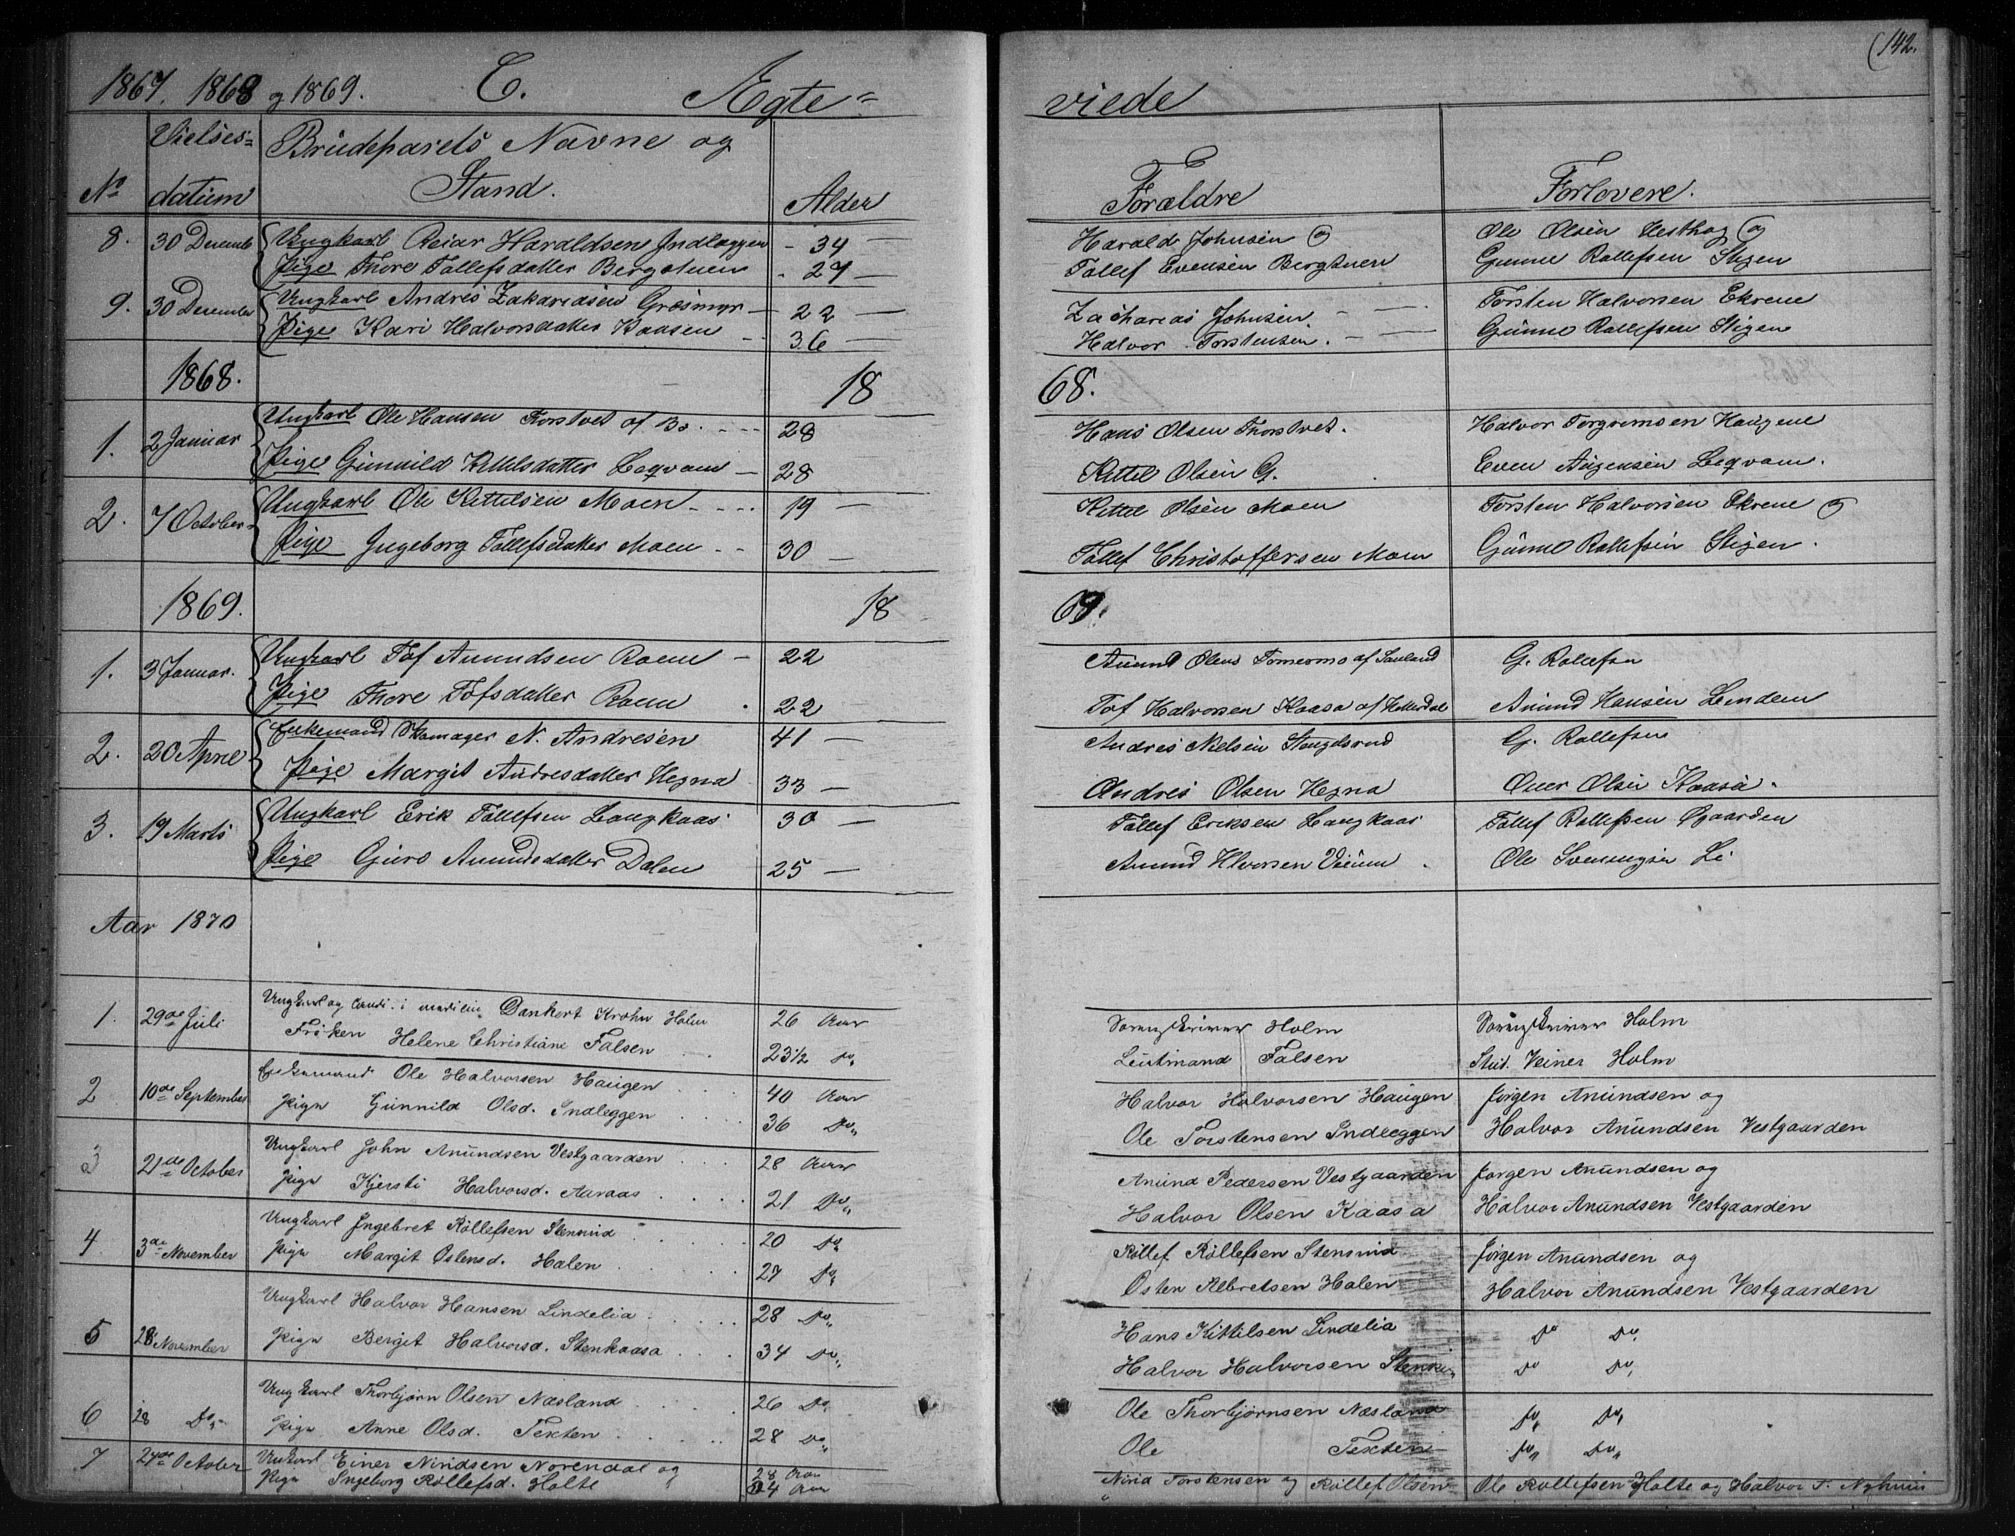 (142.
1867. 1868 og 1869. C. Ægte= viede
No Vielses= datum Brudeparets Navne og Stand. Alder Forældre Forlovere.
8. 30 Decemb Ungkarl Reiar Haraldsen Indlæggen - 34 — Harald Johnsen og Ole Olsen Hesthag og
Pige Thore Tollefsdatter Bergstuen - 27 — Tollef Evensen Bergstuen Gunne Rollefsen Stigen
9. 30 December Ungkarl Andres Zakariasen Græsmyr — 22 — Zacharias Johnsen — Torsten Halvorsen Ekrene
Pige Kari Halvorsdatter Kaasen — 36 — Halvor Torstensen. — Gunne Rollefsen Stigen
1868. 18 68.
1. 2 Januar Ungkarl Ole Hansen Torstvet af Bø. 28 Hans Olsen Thorstvet. Halvor Torgrimsen Haugene
Pige Gunnild Kittelsdatter Leqvam — 28 Kittel Olsen G. Even Aagensen Leqvam.
2. 7 October Ungkarl Ole Kittelsen Moen 19 — Kittel Olsen Moen Torsten Halvorsen Ekrene og
Pige Ingeborg Tollefsdatter Moen 30 — Tollef Christoffersen Moen Gunne Rollefsen Stigen.
1869. 18 69.
1. 3 Januar. Ungkarl Tof Anundsen Roen — 22 Anund Olsen af Sauland G. Rollefsen
Pige Thore Tofsdatter Roen 22 Tof Halvorsen Kaasa af Hitterdal Anund Hansen Lindem
2. 20 April Enkemand Skomager N. Andresen 41 — Andres Nielsen G. Rollefsen
Pige Margit Andresdatter Hegna 33 — Andres Olsen Hegna Over Olsen Kaasa.
3. 19 Marts Ungkarl Erik Tollefsen Langkaas 30 — Tollef Eriksen Langkaas Tollef Rollefsen Øgaarden
Pige Guro Anundsdatter Dalen 25 — Anund Hlvorsen Ole Svenungsen Li.
Aar 1870
1. 29de Juli Ungkarl og Candi. i medicin Dankert Krohn Holm 26 Aar Sorenskriver Holm Sorenskriver Holm
Frøken Helene Christiane Falsen 23½ Do„ Leutinand Falsen Stud. Veiner Holm
2 10de September Enkemand Ole Halvorsen Haugen 40 Aar Halvor Halvorsen Haugen Jørgen Anundsen og
Pige Gunnild Olsd. Indleggen 36 Do„ Ole Torstensen Indleggen Halvor Anundsen Vestgaarden
3 21de October Ungkarl John Anundsen Vestgaarden 28 Aar Anund Pedersen Vestgaarden Jørgen Anundsen og
Pige Kjersti Halvorsd. Aaraas 21 Do„ Halvor Olsen Kaasa Halvor Anundsen Vestgaarden
4 3de November Ungkarl Ingebret Rollefsen Stensrud 20 Do„ Rollef Rollefsen Stensrud Jørgen Anundsen og
Pige Margit Østensd. Halen 27 Do„ Østen Albretsen Halen Halvor Anundsen Vestgaarden
5 28 November Ungkarl Halvor Hansen Lindelia 28 Do„ Hans Kittilsen Lindelia Do Do,
Pige Bergit Halvorsd. Stenkaasa 34 Do„ Halvor Halvorsen Do Do,
6 28 Do„ Ungkarl Thorbjørn Olsen Næsland 26 Do„ Ole Thorbjørnsen Næsland Do„ Do„
Pige Anne Olsd. Texten 28 Do„ Ole Texten Do„ Do„
7 24de October Ungkarl Einer Niridsen Norendal og 28 Aar Nirid Torstensen og Rollef Olsen Ole Rollefsen Holte og Halvor T. Nyhuus
Pige Ingeborg Rollefsd. Holte 24 Aar